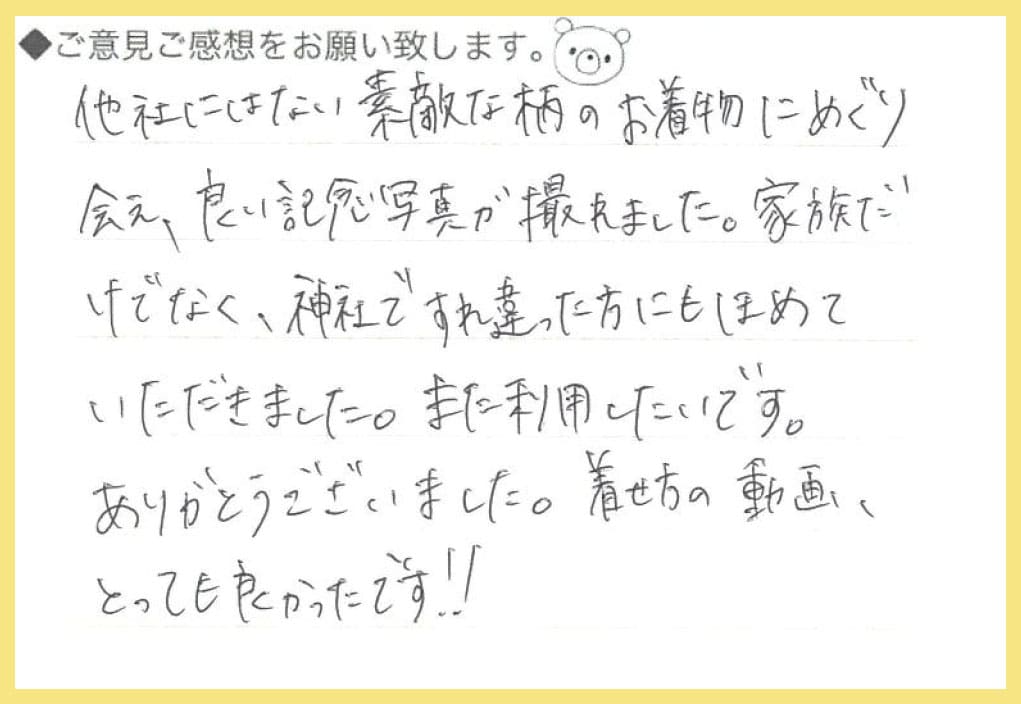 ◆ご意見ご感想をお願い致します。
他社にはない素敵な柄のお着物にめぐり
会え、良い記念写真が撮れました。家族だ
けでなく、神社ですれ違った方にもほめて
いただきました。また利用したいです。
ありがとうございました。着せ方の動画、
とっても良かったです!!